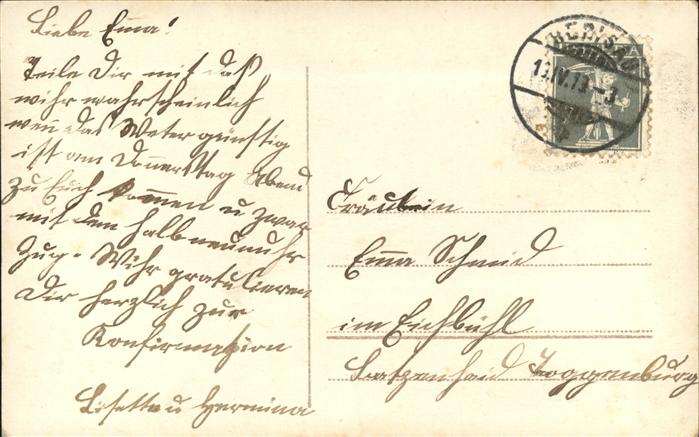 Liebe Emma!
Teile Dir mit daß
wihr wahrscheinlich
wen das Weter günstig
ist am Donnerstag Abend
zu Euch kommen u zwar
mit dem halbneunuhr
Zug. Wihr gratulieren
Dir herzlich zur
Konfirmation
Lisette u Hermina
HERISAU
IV.13
Fräulein
Emma Schmid
im Eichbühl
Batzenheid Toggenburg